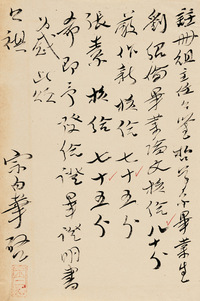 註冊組主任公鑒 哲學系畢業生
劉紹侮畢業論文核給八十分
嚴作新核給七十五分
張素核給七十五分
希即予發給證畢證明書
為感此頌
公祺
宗白華啟